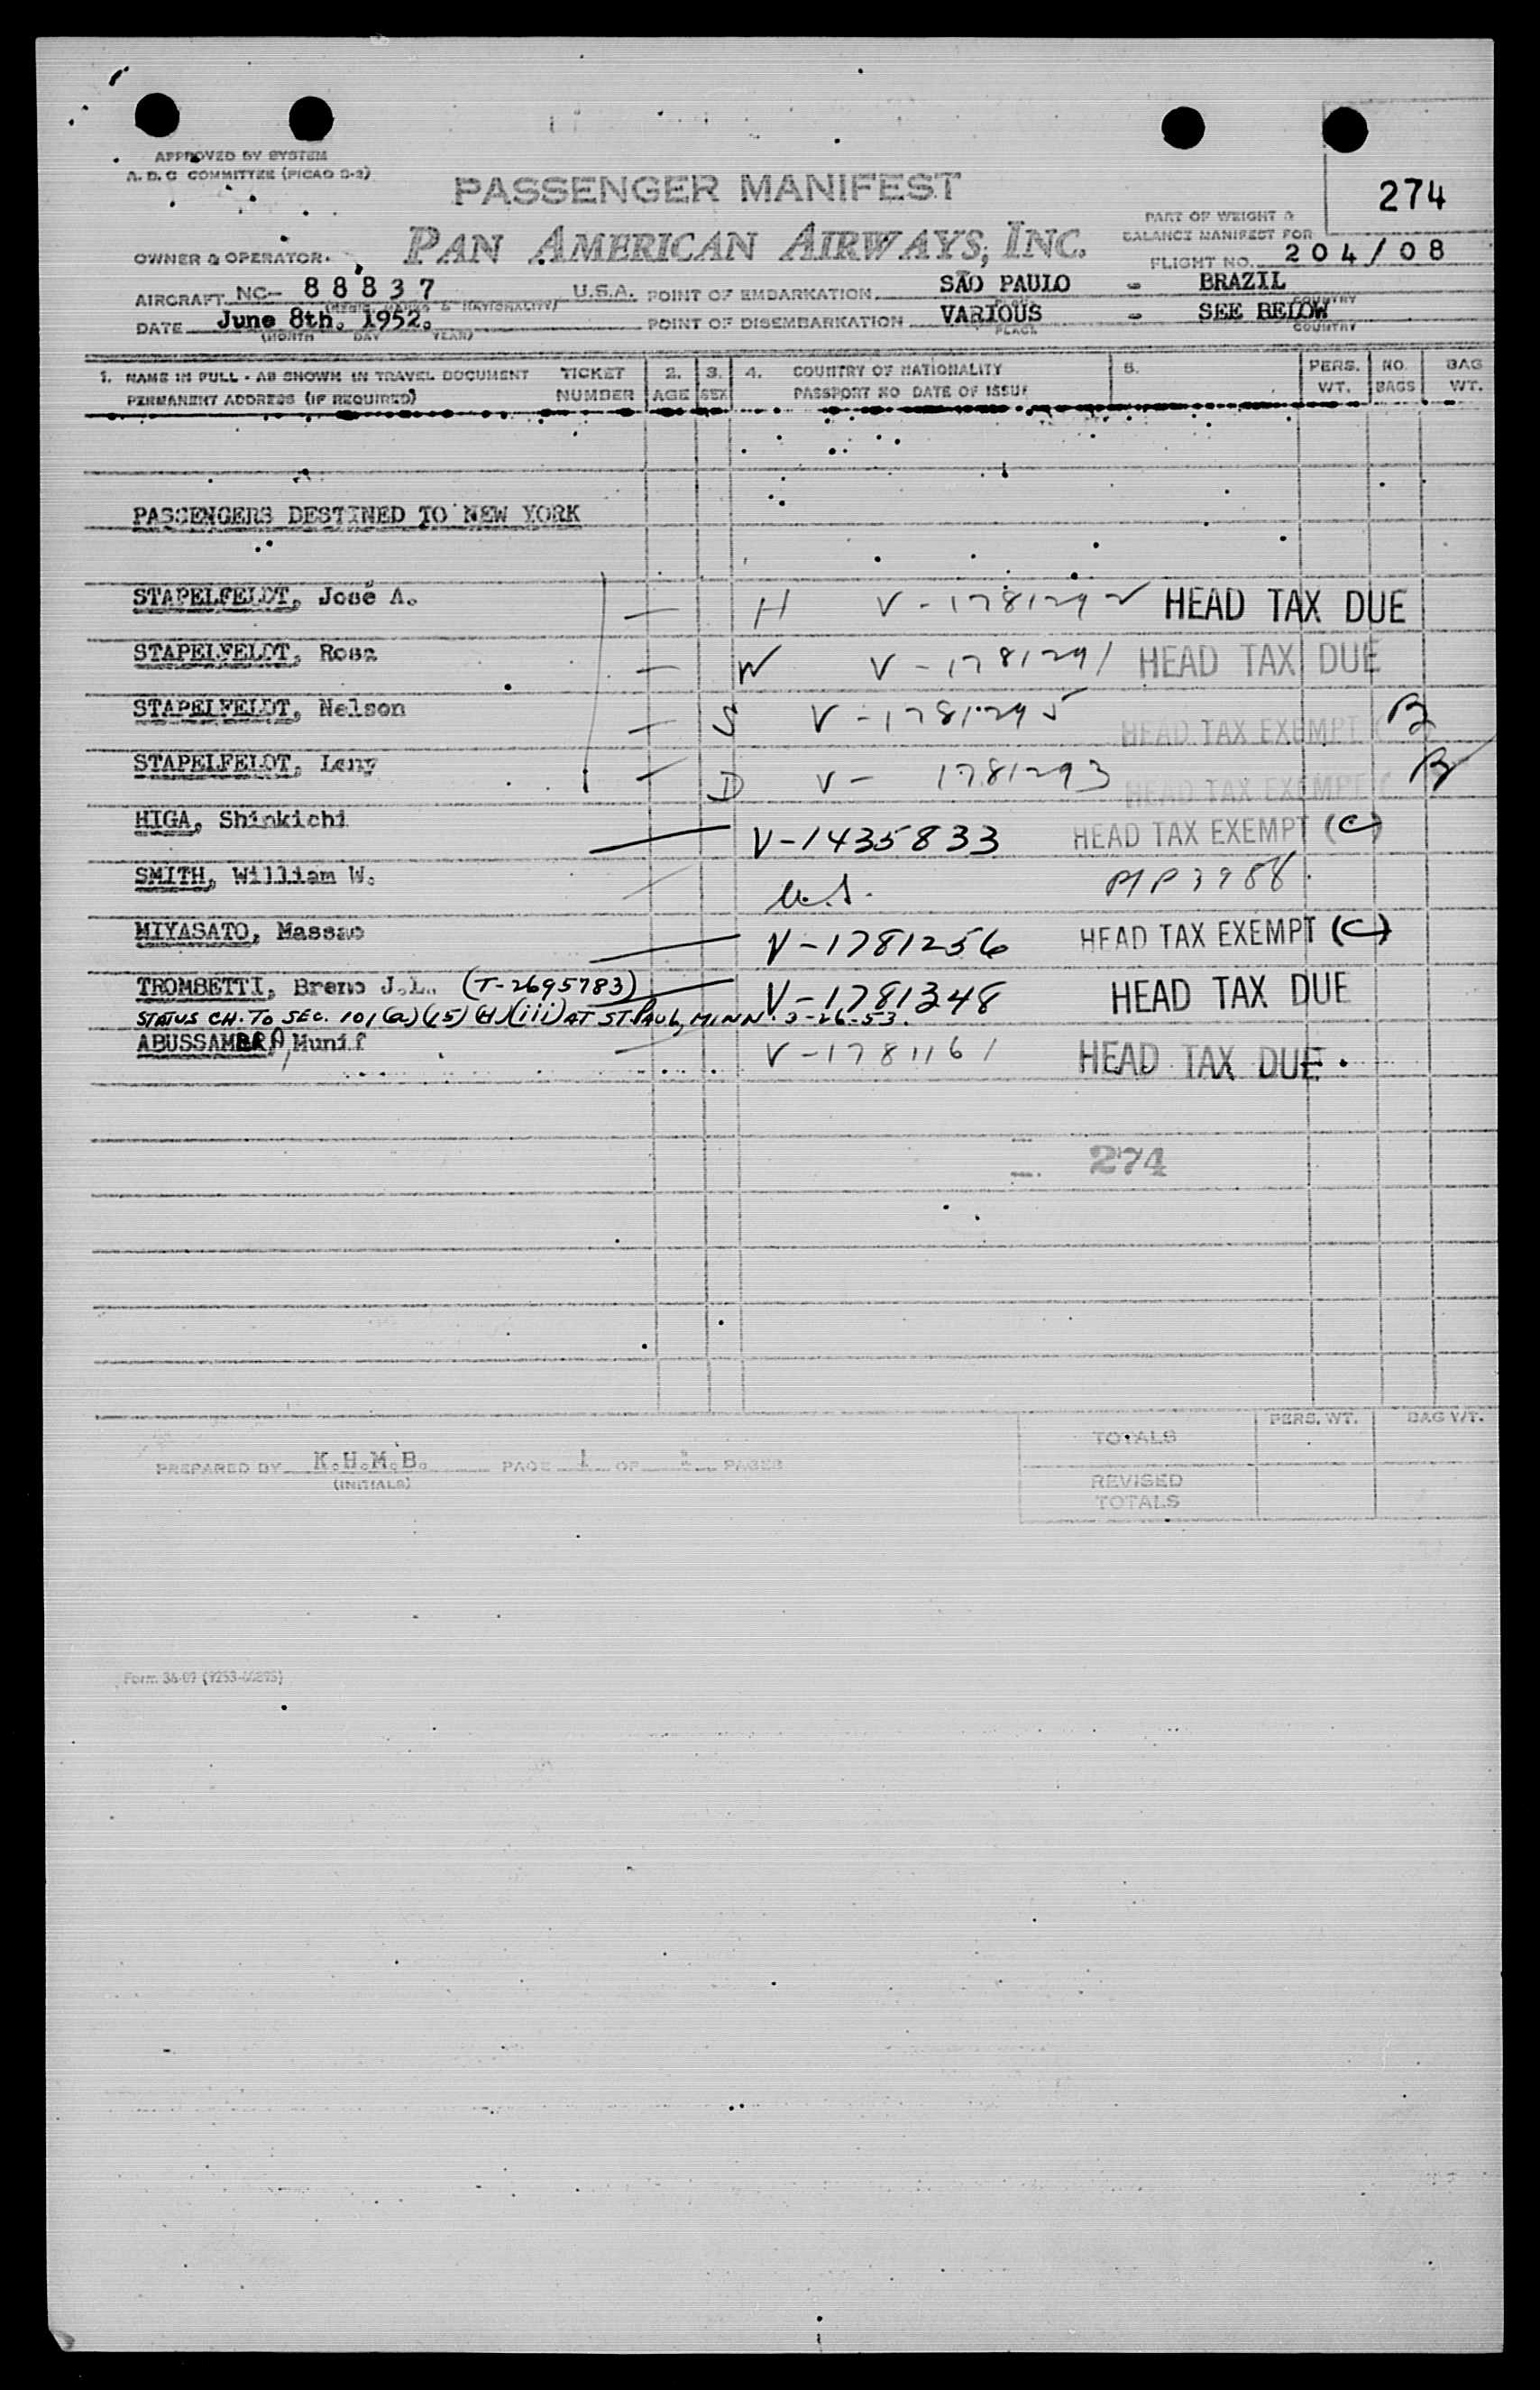 APPROVED BY SYSTEM
A. D. C COMMITTEE (PICAO S-2)
PASSENGER MANIFEST
274
PART OF WEIGHT &
BALANCE MANIFEST FOR
OWNER & OPERATOR. PAN AMERICAN AIRWAYS, INC.
FLIGHT NO. 204/08
AIRCRAFT NC- 88837 U.S.A. POINT OF EMBARKATION SÃO PAULO - BRAZIL
(REGIS. MARKS & NATIONALITY) PLACE COUNTRY
DATE June 8th. 1952. POINT OF DISEMBARKATION VARIOUS - SEE BELOW
(MONTH DAY YEAR) PLACE COUNTRY
1. NAME IN FULL - AS SHOWN IN TRAVEL DOCUMENT TICKET 2. 3. 4. COUNTRY OF NATIONALITY 5. PERS. NO. BAG
PERMANENT ADDRESS (IF REQUIRED) NUMBER AGE SEX PASSPORT NO DATE OF ISSUE WT. BAGS WT.
PASSENGERS DESTINED TO NEW YORK
STAPELFELDT, José A. H V-1781292 HEAD TAX DUE
STAPELFELDT, Rosa W V-1781291 HEAD TAX DUE
STAPELFELDT, Nelson S V-1781295 HEAD TAX EXEMPT (
STAPELFELDT, Leny D V- 1781293 HEAD TAX EXEMPT (
HIGA, Shinkichi V-1435833 HEAD TAX EXEMPT (C)
SMITH, William W. U.S. PP3988
MIYASATO, Massao V-1781256 HEAD TAX EXEMPT (C)
TROMBETTI, Breno J.L. (T-2695783) V-1781348 HEAD TAX DUE
STATUS CH. TO SEC. 101(a)(15)(H)(iii) AT ST. PAUL, MINN 3-26-53.
ABUSSAMRA, Munif V-1781161 HEAD TAX DUE
274
PERS. WT. BAG WT.
TOTALS
PREPARED BY K.H.M.B. PAGE 1 OF PAGES
(INITIALS)
REVISED
TOTALS